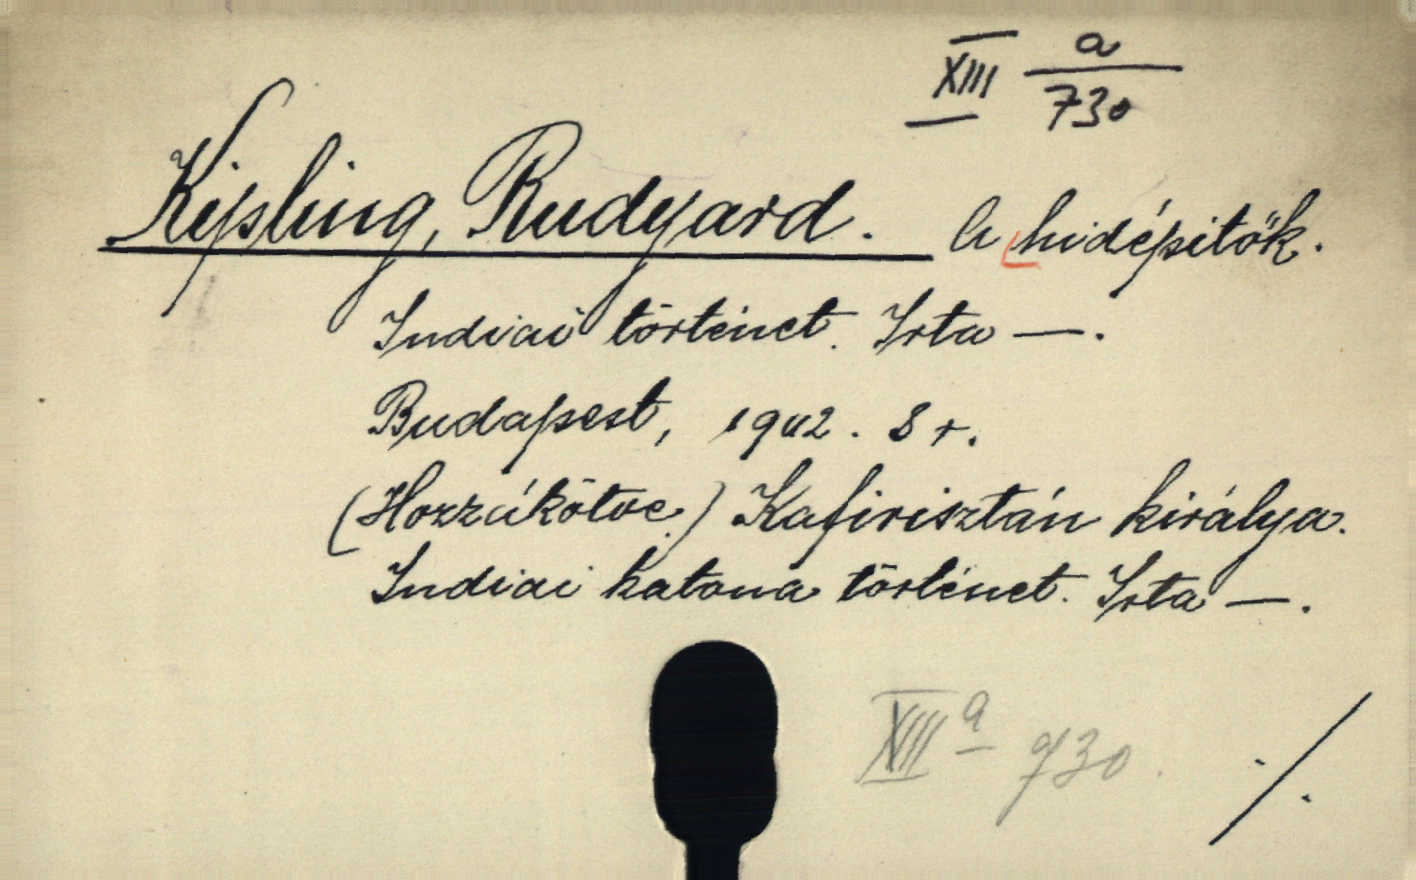 XIII a/730
Kipling, Rudyard. A hidépitők.
Indiai történet. Irta —.
Budapest, 1902. 8 r.
(Hozzákötve.) Kafirisztán királya.
Indiai katona történet. Irta —.
XIII a 730.
./.